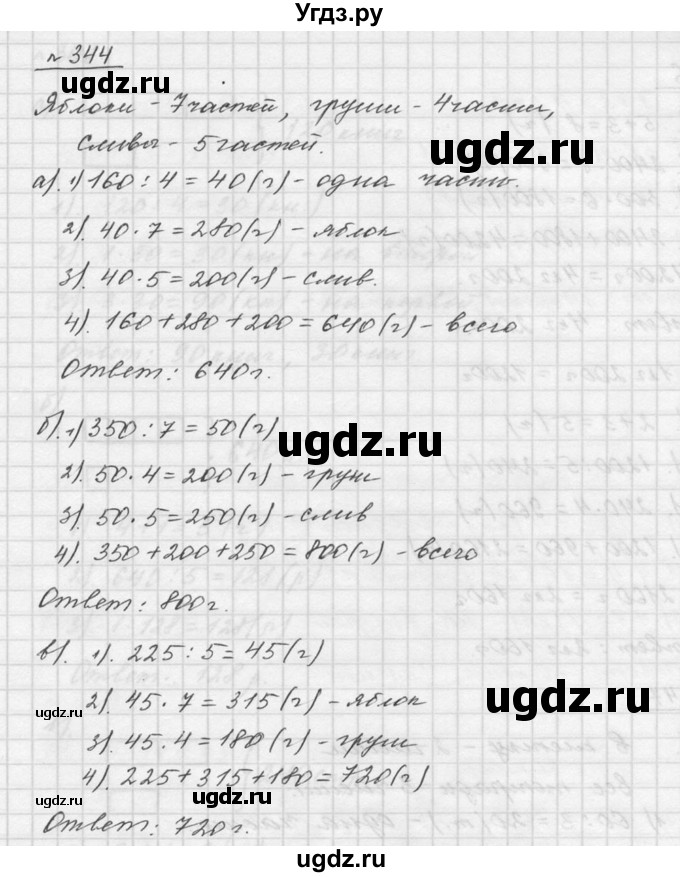 Угдз.ру
№ 344
ugdz.ru
Яблоки - 7 частей, груши - 4 части,
ugdz.ru
сливы - 5 частей.
а). 1) 160 : 4 = 40 (г) - одна часть.
2). 40 · 7 = 280 (г) - яблок
ugdz.ru
3). 40 · 5 = 200 (г) - слив.
4). 160 + 280 + 200 = 640 (г) - всего
Ответ: 640 г.
б). 1) 350 : 7 = 50 (г)
ugdz.ru
2). 50 · 4 = 200 (г) - груш
3). 50 · 5 = 250 (г) - слив
ugdz.ru
4). 350 + 200 + 250 = 800 (г) - всего
Ответ: 800 г.
в). 1). 225 : 5 = 45 (г)
2). 45 · 7 = 315 (г) - яблок
ugdz.ru
ugdz.ru
3). 45 · 4 = 180 (г) - груш
4). 225 + 315 + 180 = 720 (г)
ugdz.ru
Ответ: 720 г.
ugdz.ru
ugdz.ru